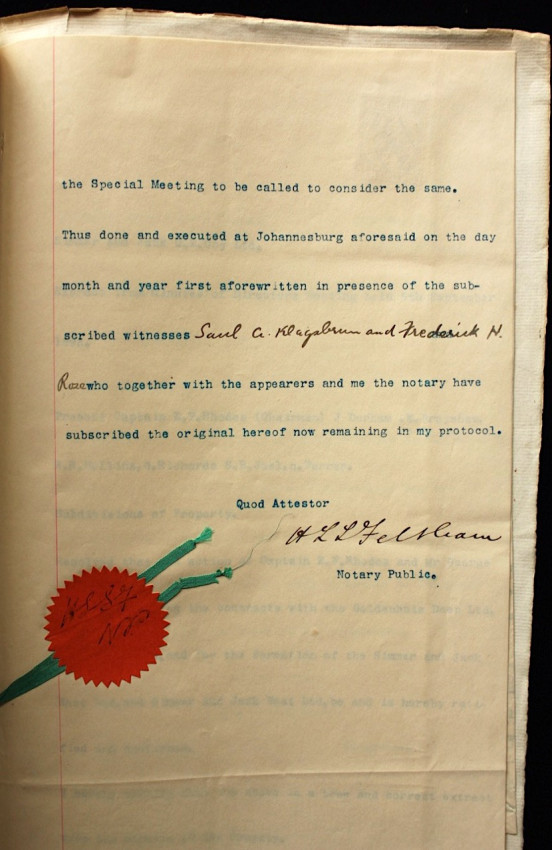 the Special Meeting to be called to consider the same.
Thus done and executed at Johannesburg aforesaid on the day
month and year first aforewritten in presence of the sub-
scribed witnesses Saul G. Klagsbrun and Frederick N.
Roze who together with the appearers and me the notary have
subscribed the original hereof now remaining in my protocol.
Quod Attestor
H L L Feltham
Notary Public.
N.P.